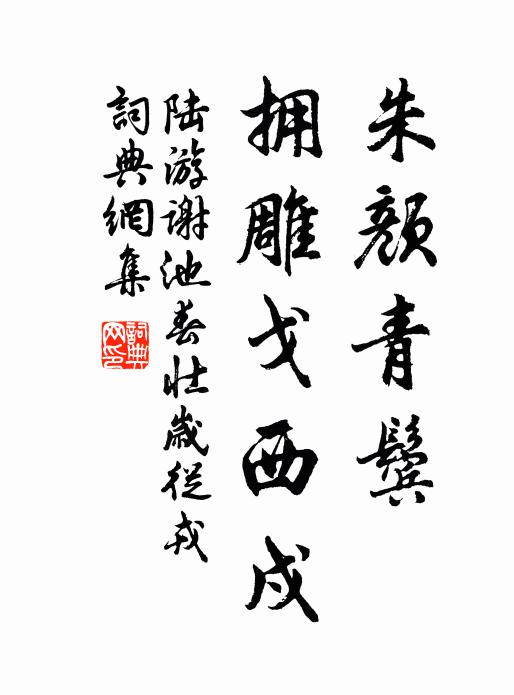 朱颜青鬓
拥雕戈西戍
陆游谢池春壮岁從戎
詞典網集
詞典网印